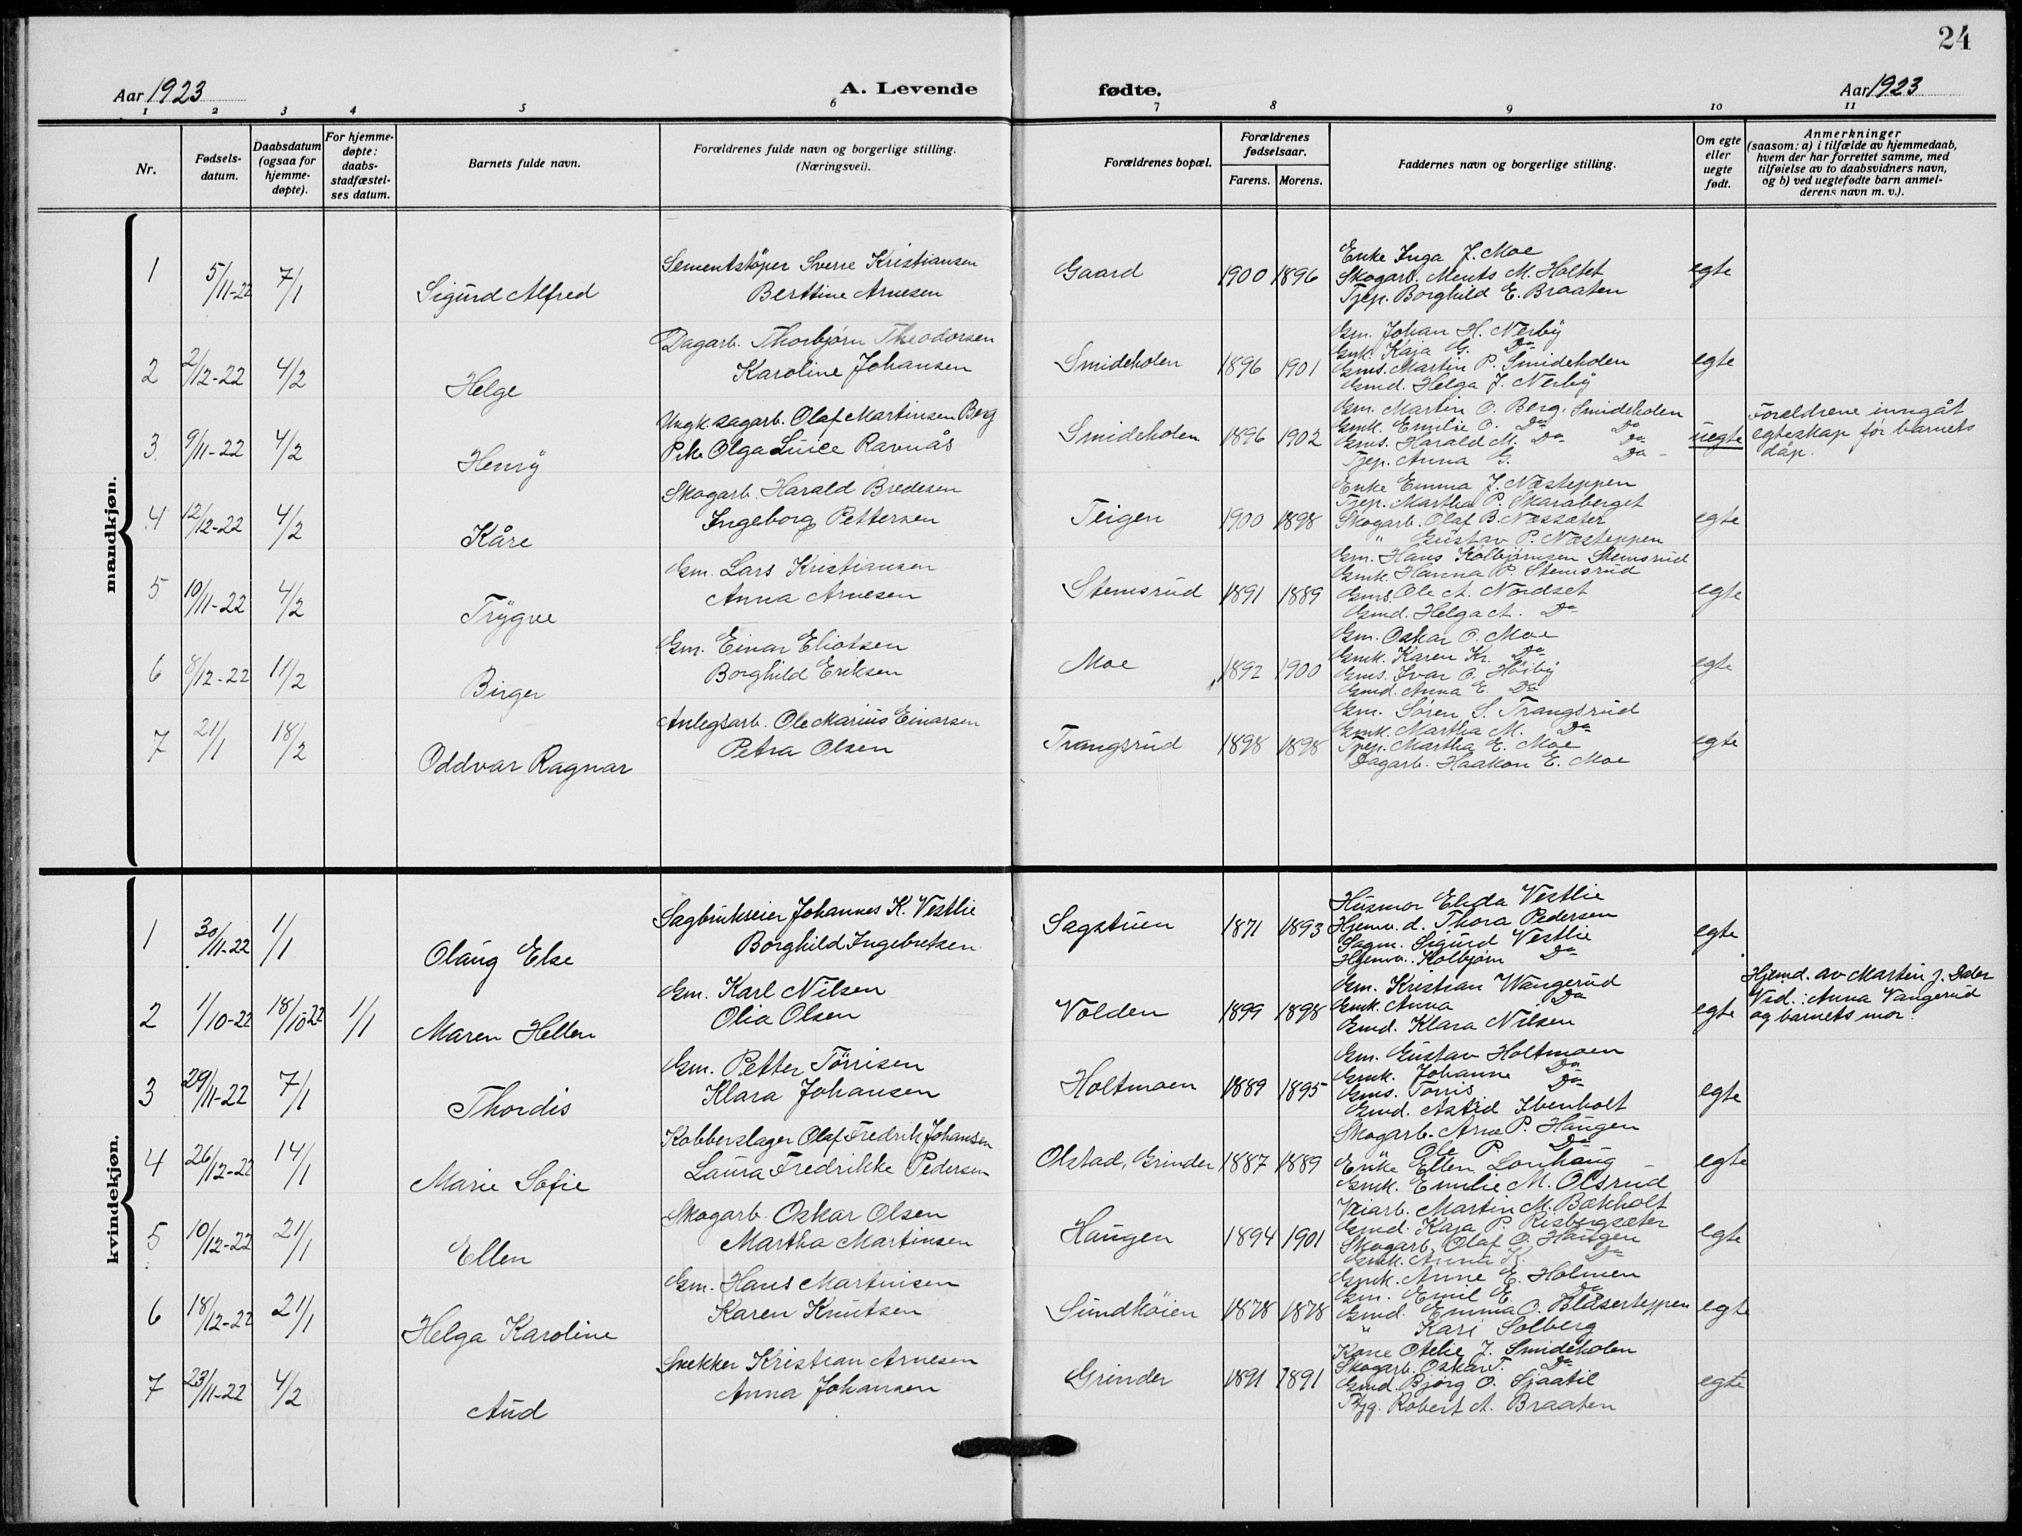 24
Aar 1923
A. Levende fødte.
Aar 1923
1 2 3 4 5 6 7 8 9 10 11
Nr.
Fødsels-
datum.
Daabsdatum
(ogsaa for
hjemme-
døpte).
For hjemme-
døpte:
daabs-
stadfæstel-
ses datum.
Barnets fulde navn.
Forældrenes fulde navn og borgerlige stilling.
(Næringsvei).
Forældrenes bopæl.
Forældrenes
fødselsaar.
Farens. Morens.
Faddernes navn og borgerlige stilling.
Om egte
eller
uegte
født.
Anmerkninger
(saasom: a) i tilfælde av hjemmedaab,
hvem der har forrettet samme, med
tilføielse av to daabsvidners navn,
og b) ved uegtefødte barn anmel-
derens navn m. v.).
mandkjøn.
1 5/11-22 7/1 Sigurd Alfred
Sementstøper Sverre Kristiansen
Berttine Arnesen
Gaard 1900 1896
Enke Inga J. Moe
Skogarb. Ments M. Holtet
Tjep. Borghild E. Braaten
egte
2 2/12-22 4/2 Helge
Dagarb. Thorbjørn Theodorsen
Karoline Johansen
Smideholen 1896 1901
Gm. Johan H. Nerby
Gmk. Kaja G. Do
Gms. Martin P. Smideholen
Gmd. Helga J. Nerby
egte
3 9/11-22 4/2 Henry
Ungk. dagarb. Olaf Martinsen Berg
Pike Olga Luice Ravnås
Smideholen 1896 1902
Gm. Martin O. Berg, Smideholen
Gmk. Emilie O. Do Do
Gms. Harald M. Do Do
Tjep. Anna G. Do
uegte
Forældrene inngåt
egteskap før barnets
dåp.
4 12/12-22 4/2 Kåre
Skogarb. Harald Bredesen
Ingeborg Pettersen
Teigen 1900 1898
Enke Emma J. Næsteppen
Tjep. Martha P. Skaraberget
Skogarb. Olaf B. Næssæter
" Gustav P. Næsteppen
egte
5 10/11-22 4/2 Trygve
Gm. Lars Kristiansen
Anna Arnesen
Stemsrud 1891 1889
Gm. Hans Kolbjørnsen Stemsrud
Gmk. Hanna P. Stemsrud
Gms. Ole A. Nordset
Gmd. Helga A. Do
egte
6 8/12-22 11/2 Birger
Gm. Einar Eliotsen
Borghild Eriksen
Moe 1892 1900
Gm. Oskar O. Moe
Gmk. Karen Kr. Do
Gms. Ivar O. Høiby
Gmd. Anna E. Do
egte
7 21/1 18/2 Oddvar Ragnar
Anlegsarb. Ole Marius Einarsen
Petra Olsen
Trangsrud 1898 1898
Gm. Søren S. Trangsrud
Gmk. Martha M. Do
Tjep. Martha E. Moe
Dagarb. Haakon E. Moe
egte
kvindekjøn.
1 30/11-22 1/1 Olaug Else
Sagbrukseier Johannes K. Vestlie
Borghild Ingebretsen
Sagstuen 1871 1893
Husmor Elida Vestlie
Hjemv. d. Thora Pedersen
Sagm. Sigurd Vestlie
Hjemv. Kolbjørn Do
egte
2 1/10-22 18/10-22 1/1 Maren Hellen
Gm. Karl Nilsen
Olia Olsen
Volden 1899 1898
Gm. Kristian Wangerud
Gmk. Anna Do
Gmd. Klara Nilsen
egte
Hjemd. av Martin J.
Vid.: Anna Vangerud
og barnets mor.
3 29/11-22 7/1 Thordis
Gm. Petter Tørrisen
Klara Johansen
Holtmoen 1889 1895
Gm. Gustav Holtmoen
Gmk. Johanne Do
Gms. Torris Do
Gmd. Astrid Ibenholt
egte
4 26/12-22 14/1 Marie Sofie
Kobberslager Olaf Fredrik Johansen
Laura Fredrikke Pedersen
Olstad, Grinder 1887 1889
Skogarb. Arne P. Haugen
Ole P. Do
Enke Ellen Lonhaug
Gmk. Emilie M. Olsrud
egte
5 10/12-22 21/1 Ellen
Skogarb. Oskar Olsen
Martha Martinsen
Haugen 1894 1901
Veiarb. Martin M. Bækholt
Gmd. Kaja P. Risbergsæter
Skogarb. Olaf O. Haugen
Gmk. Anna K. Do
egte
6 18/12-22 21/1 Helga Karoline
Gm. Hans Martinisen
Karen Knutsen
Sundkøien 1878 1878
Gmk. Anne E. Holmen
Gm. Emil E. Do
Gmd. Emma O. Blåserteppen
" Kari Solberg
egte
7 23/11-22 4/2 Aud
Snekker Kristian Arnesen
Anna Johansen
Grinder 1891 1891
Kone Otelie J. Smideholen
Skogarb. Oskar T. Do
Gmd. Bjørg O. Sjaatil
Tbg. Robert A. Braaten
egte